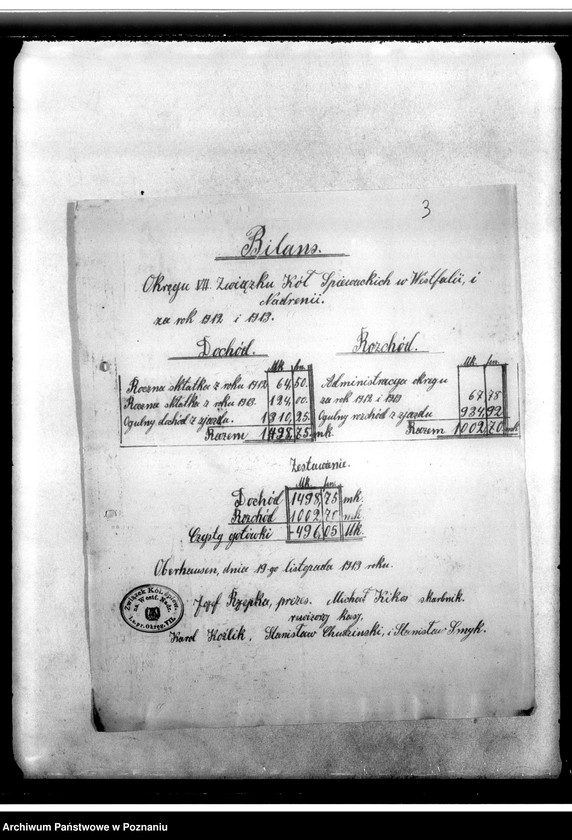 3
Bilans.
Okręgu VII Związku Kół Śpiewackich w Westfalii, i
Nadrenii.
za rok 1912 i 1913.
Dochód. Rozchód.
Mk. fen. Mk. fen.
Roczna składka z roku 1912 64,50.
Roczna składka z roku 1913. 124,00.
Ogulny dochód z zjazdu. 1310,25.
Razem 1498,75 mk.
Administracya okręgu
za rok 1912 i 1913 67,78
Ogulny rozchód z zjazdu 934,92
Razem 1002,70 mk
Zestawienie.
Mk. fen.
Dochód 1498,75 mk.
Rozchód 1002,70 mk
Czysty gotówki 496,05 Mk.
Oberhausen, dnia 19-go listopada 1913 roku.
Związek Kół śpiew.
na Westf. Nadr.
Okręg. VII.
Józef Rzepka, prezes. Michał Kikos skarbnik.
rewizorzy kasy,
Karol Koźlik, Stanisław Chudzinski, i Stanisław Smyk.
Archiwum Państwowe w Poznaniu